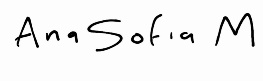 Ana Sofia M